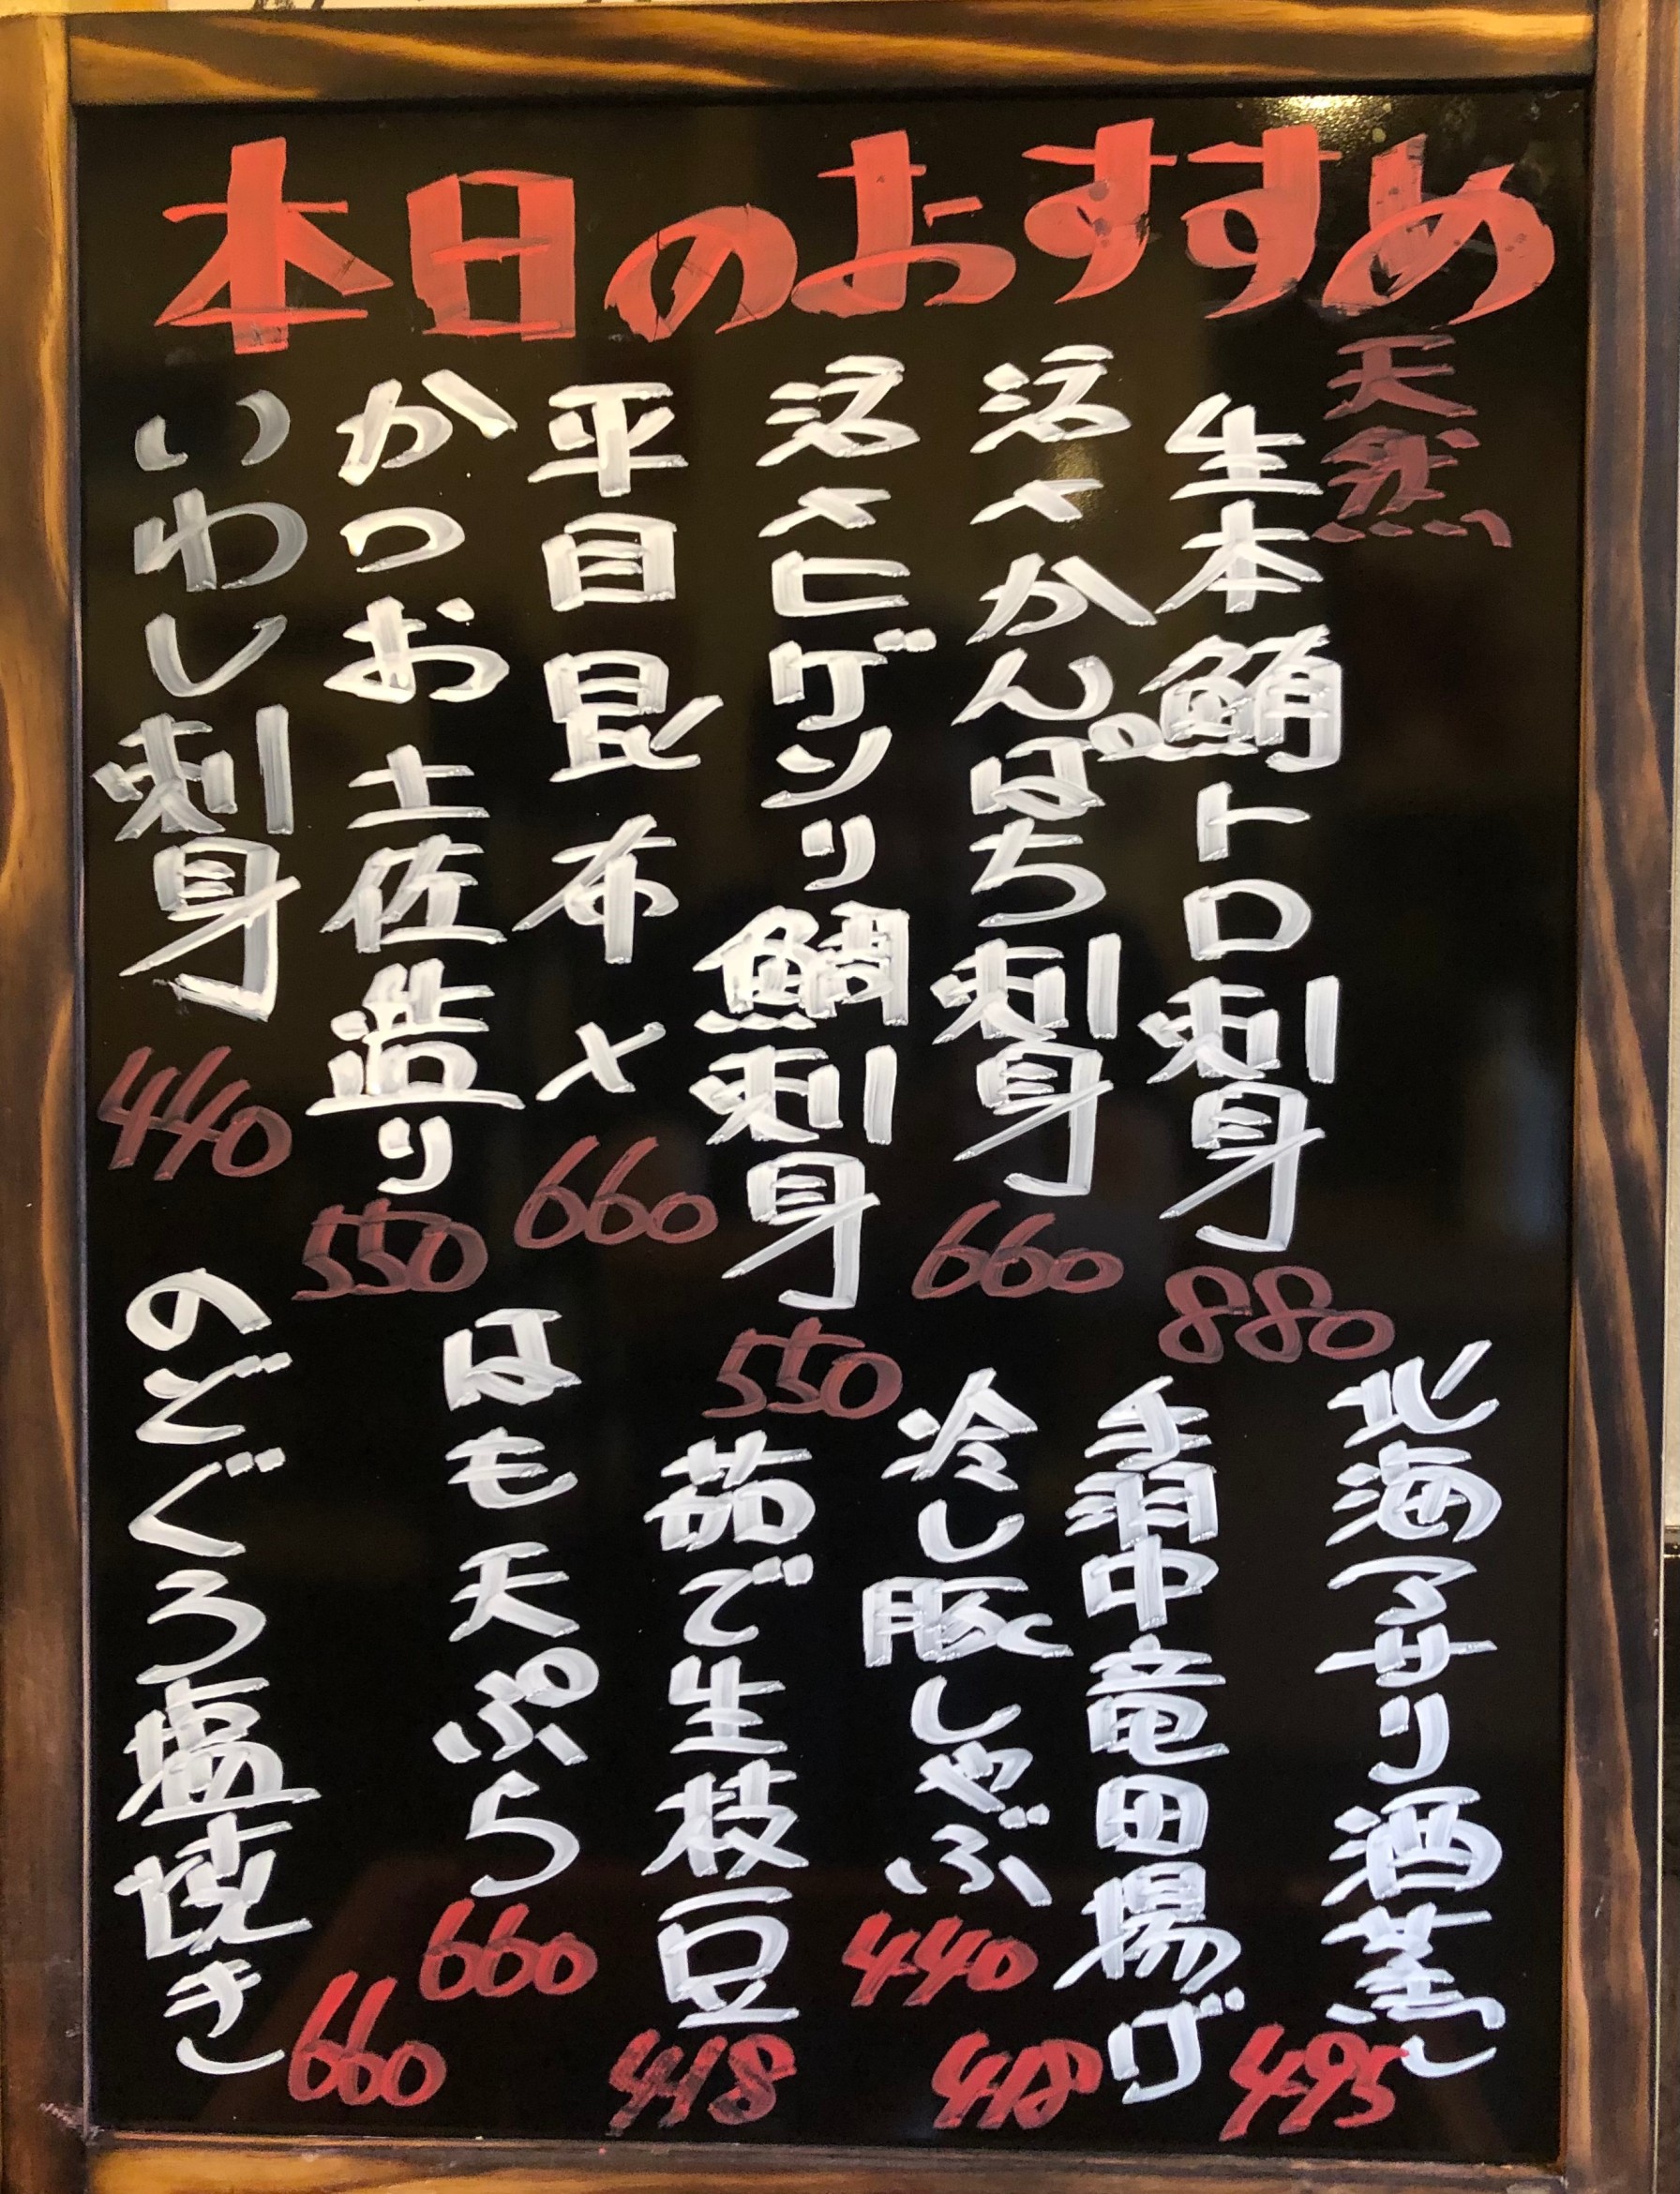 本日のおすすめ
天然
生本鮪トロ刺身
880
活〆かんぱち刺身
660
活〆ヒゲソリ鯛刺身
550
平目昆布〆
660
かつお土佐造り
550
いわし刺身
440
北海アサリ酒蒸し
495
手羽中竜田揚げ
418
冷し豚しゃぶ
440
茹で生枝豆
418
はも天ぷら
660
のどぐろ塩焼き
660